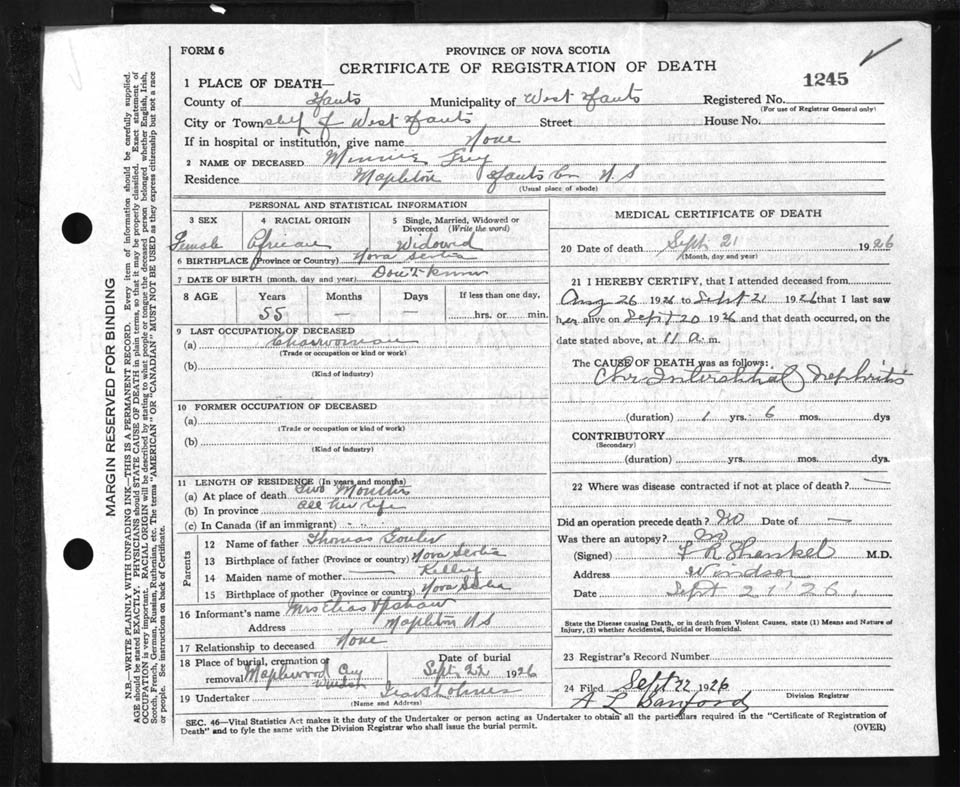 FORM 6
PROVINCE OF NOVA SCOTIA
CERTIFICATE OF REGISTRATION OF DEATH
1245
1 PLACE OF DEATH—
County of Hants Municipality of West Hants Registered No.
(For use of Registrar General only)
City or Town of West Hants Street House No.
If in hospital or institution, give name None
2 NAME OF DECEASED Minnie
Residence Mapleton Hants Co N.S
(Usual place of abode)
PERSONAL AND STATISTICAL INFORMATION
3 SEX 4 RACIAL ORIGIN 5 Single, Married, Widowed or Divorced (Write the word)
Female African Widowed
6 BIRTHPLACE (Province or Country) Nova Scotia
7 DATE OF BIRTH (month, day and year) Don't know
8 AGE Years Months Days If less than one day,
55 — — hrs. or min.
9 LAST OCCUPATION OF DECEASED
(a) Charwoman
(Trade or occupation or kind or work)
(b)
(Kind of industry)
10 FORMER OCCUPATION OF DECEASED
(a)
(Trade or occupation or kind of work)
(b)
(Kind of industry)
11 LENGTH OF RESIDENCE (In years and months)
(a) At place of death Two Months
(b) In province all her life
(c) In Canada (if an immigrant)
Parents
12 Name of father Thomas
13 Birthplace of father (Province or country) Nova Scotia
14 Maiden name of mother Kelley
15 Birthplace of mother (Province or country) Nova Scotia
16 Informant's name Mrs Elias Upshaw
Address Mapleton N S
17 Relationship to deceased None
18 Place of burial, cremation or removal Maplewood Cey Windsor
Date of burial Sept. 22 1926
19 Undertaker
(Name and Address)
MEDICAL CERTIFICATE OF DEATH
20 Date of death Sept 21 1926
(Month, day and year)
21 I HEREBY CERTIFY, that I attended deceased from
Aug 26 1926 to Sept 21 1926 that I last saw
her alive on Sept 20 1926 and that death occurred, on the
date stated above, at 11 a. m.
The CAUSE OF DEATH was as follows:
Chr Interstitial Nephritis
(duration) 1 yrs. 6 mos. dys
CONTRIBUTORY
(Secondary)
(duration) yrs. mos. dys.
22 Where was disease contracted if not at place of death? —
Did an operation precede death? No Date of —
Was there an autopsy? No
(Signed) F R Shankel M.D.
Address Windsor
Date Sept 21 '26
State the Disease causing Death, or in death from Violent Causes, state (1) Means and Nature of
Injury, (2) whether Accidental, Suicidal or Homicidal.
23 Registrar's Record Number
24 Filed Sept 22 1926
A L Sanford
Division Registrar
SEC. 46—Vital Statistics Act makes it the duty of the Undertaker or person acting as Undertaker to obtain all the particulars required in the "Certificate of Registration of
Death" and to fyle the same with the Division Registrar who shall issue the burial permit.
(OVER)
MARGIN RESERVED FOR BINDING
N.B.—WRITE PLAINLY WITH UNFADING INK—THIS IS A PERMANENT RECORD. Every item of information should be carefully supplied.
AGE should be stated EXACTLY. PHYSICIANS should STATE CAUSE OF DEATH in plain terms, so that it may be properly classified. Exact statement of
OCCUPATION is very important. RACIAL ORIGIN will be described by stating to what people or tongue the deceased person belonged, whether English, Irish,
Scotch, French, German, Russian, Ruthenian, etc. The terms "AMERICAN" OR "CANADIAN" MUST NOT BE USED as they express citizenship but not a race
or people. See instructions on back of Certificate.